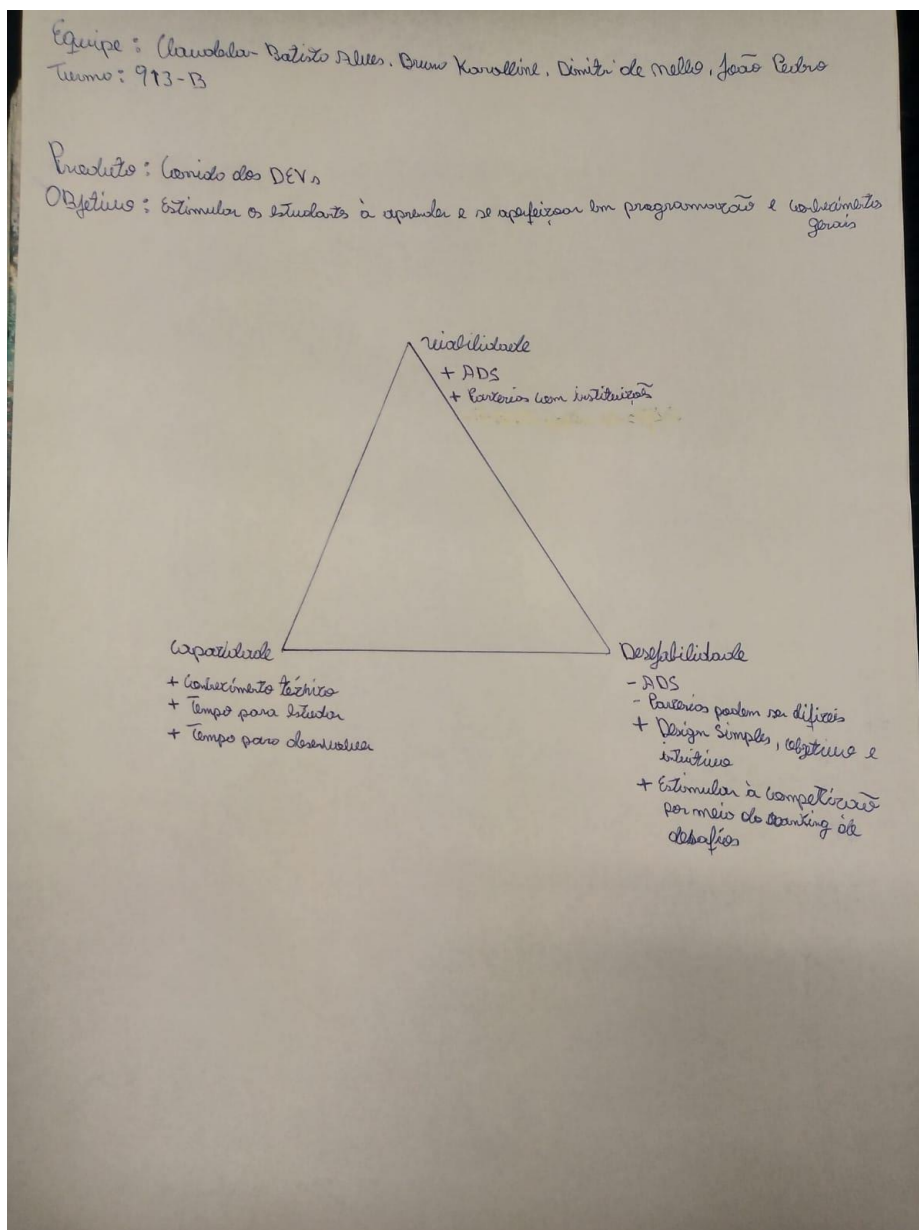 Equipe: Batista Alves, Bruna Karolline, Dimitri de Mello, João Pedro
Turma: 913-B
Produto: Corrida dos DEVs
OBjetivo: Estimular os estudantes à aprender e se aperfeiçoar em programação e conhecimentos
gerais
Viabilidade
+ ADS
+ Parcerias com instituições
Capacidade
+ Conhecimento técnico
+ Tempo para estudar
+ Tempo para desenvolver
Desejabilidade
- ADS
- Parcerias podem ser difíceis
+ Design Simples, objetivo e
intuitivo
+ Estimular à competição
por meio do ranking de
desafios